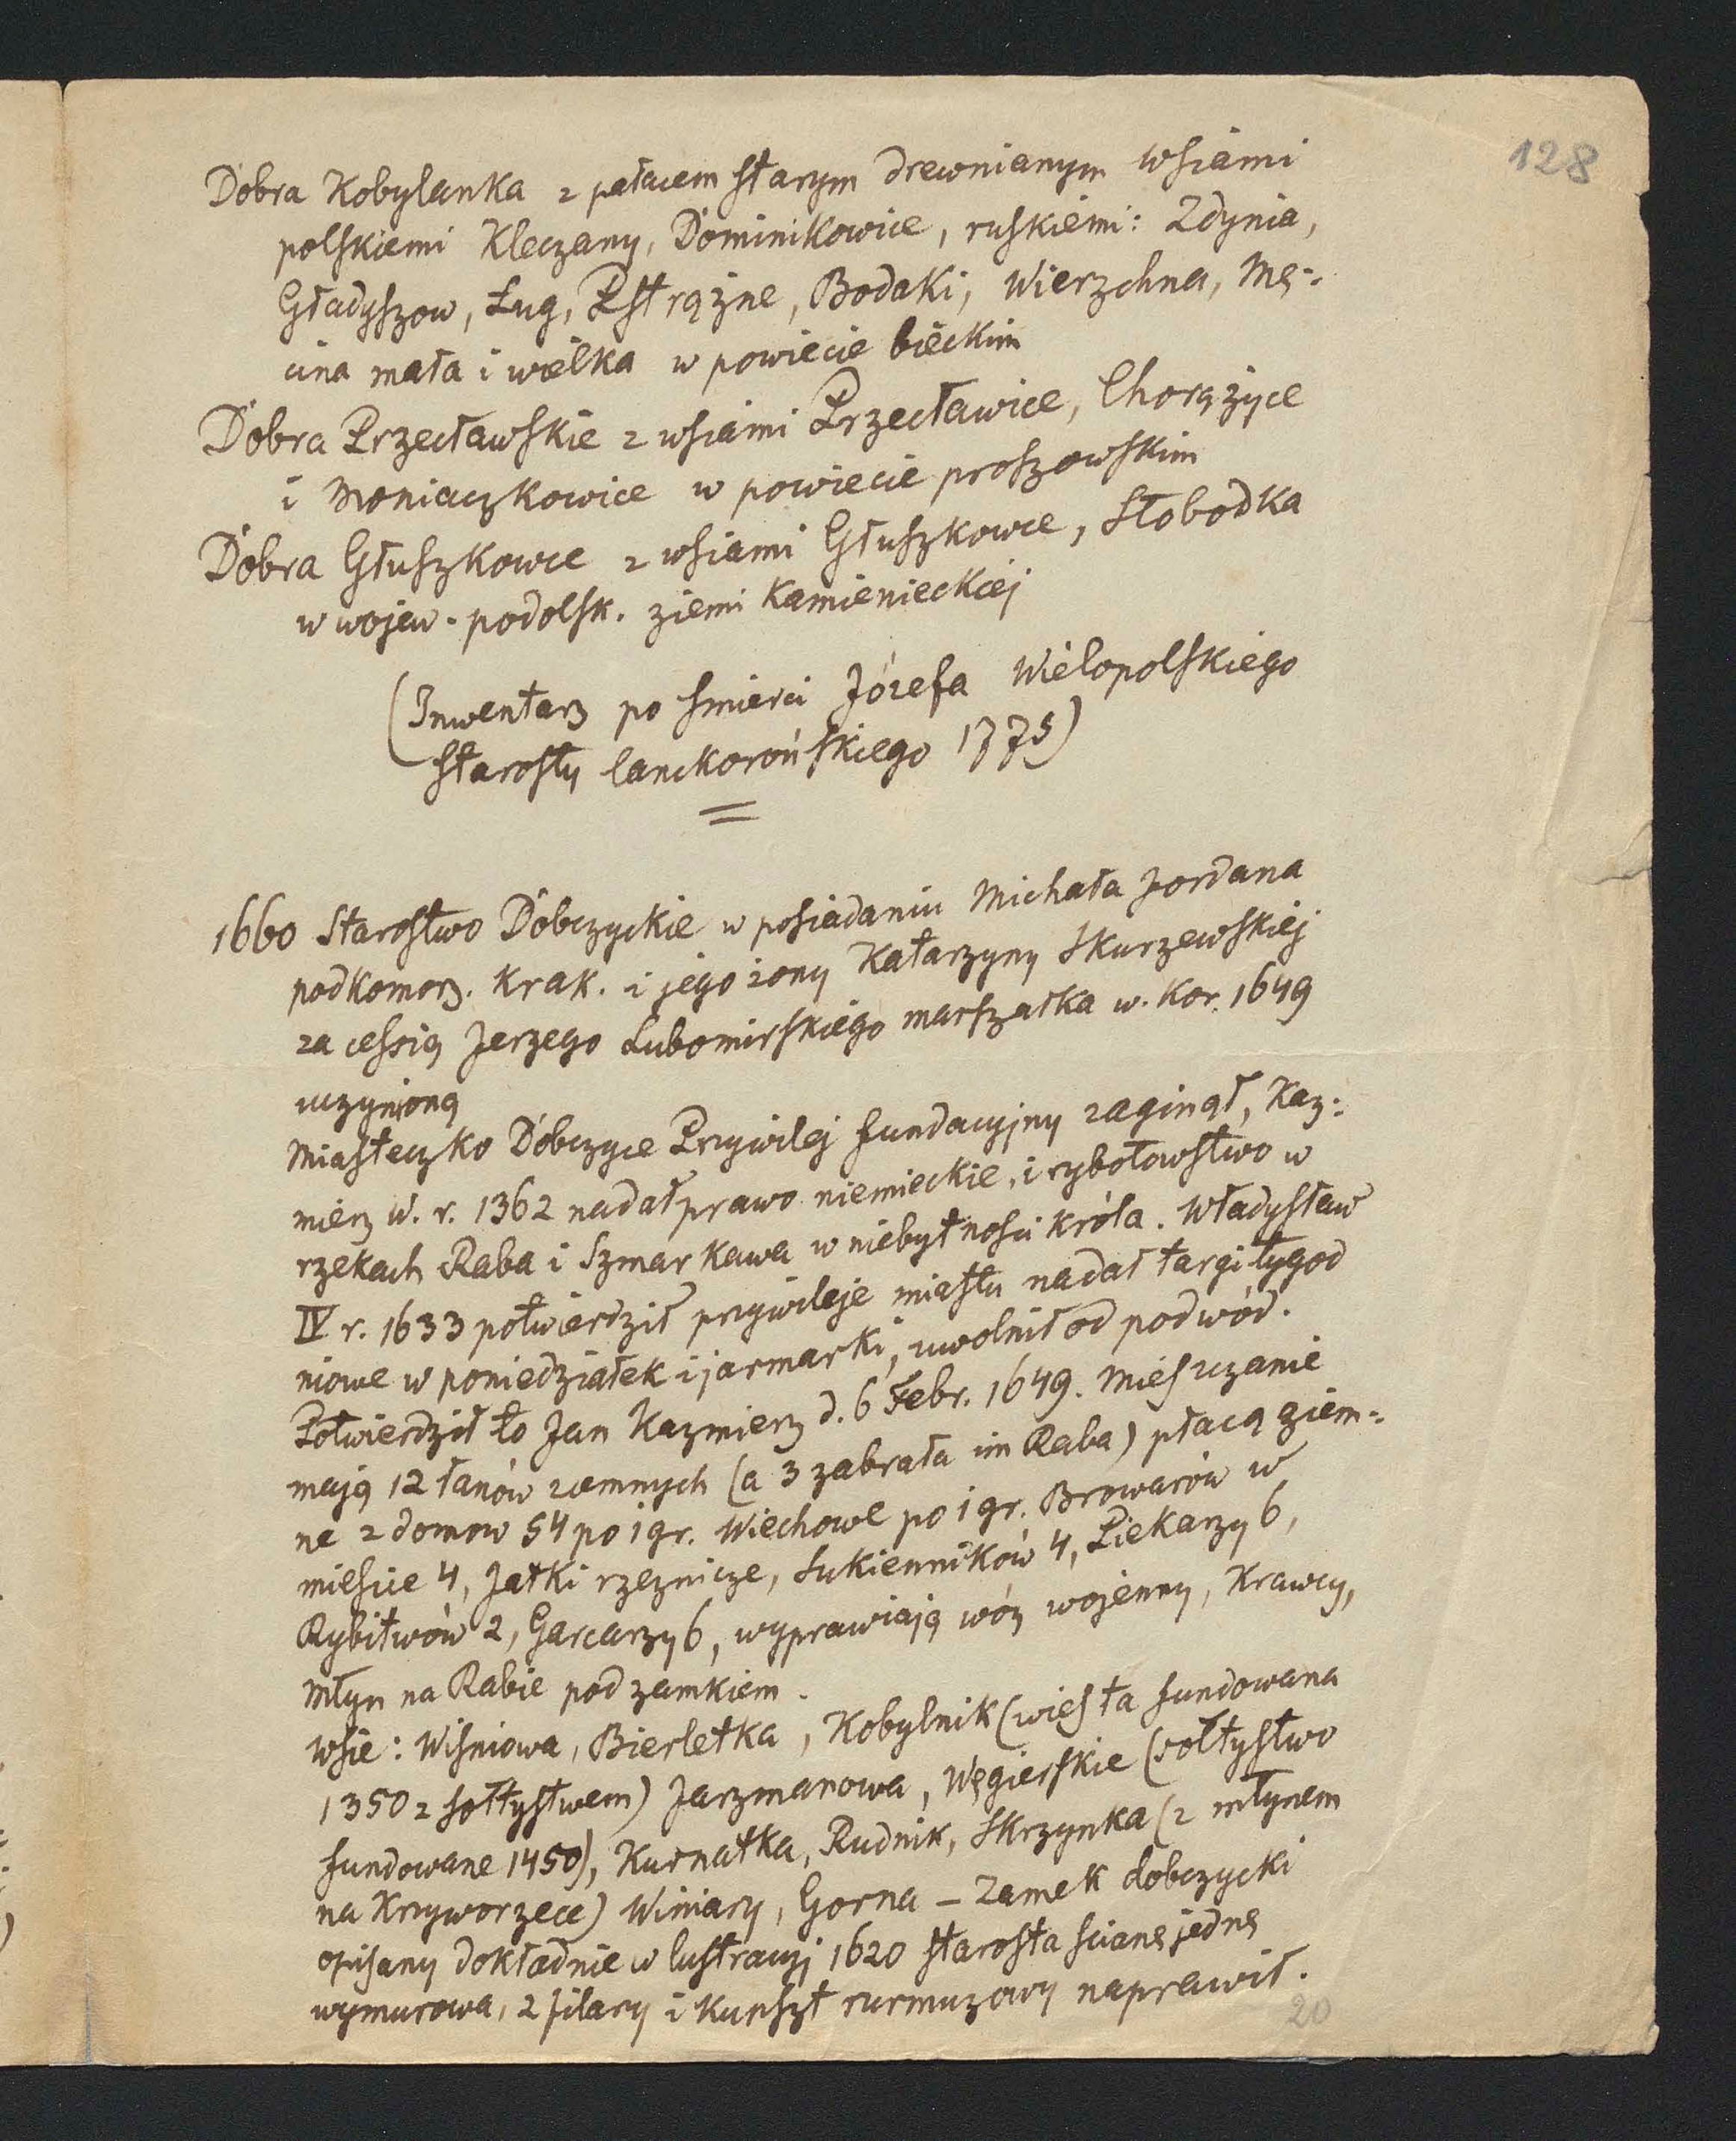 128
Dobra Kobylanka z pałacem starym drewnianym wsiami
polskiemi Kleczany, Dominikowice, ruskiemi: Zdynia,
Gładyszow, Ług, Pstrążne, Bodaki, Wierzchna, Mę=
cina mała i wielka w powiecie bieckim
Dobra Przecławskie z wsiami Przecławice, Chorążyce
i Moniaczkowice w powiecie proszowskim
Dobra Głuszkowce z wsiami Głuszkowce, Słobodka
w wojew. podolsk. ziemi Kamienieckiej
(Inwentarz po smierci Józefa Wielopolskiego
starosty lanckorońskiego 1775)
=
1660 Starostwo Dobczyckie w posiadaniu Michała Jordana
podkomorz. Krak. i jego żony Katarzyny Skurzewskiej
za cessią Jerzego Lubomirskiego marszałka w. Kor. 1649
uczynioną
Miasteczko Dobczyce Przywilej fundacyjny zaginął, Kaz=
mierz W. r. 1362 nadał prawo niemieckie, i rybołowstwo w
rzekach Raba i Szmarkawa w niebytności króla. Władysław
IV r. 1633 potwierdził przywileje miastu nadał targi tygod
niowe w poniedziałek i jarmarki, uwolnił od podwód.
Potwierdził to Jan Kazmierz d. 6 Febr. 1649. Mieszczanie
mają 12 łanów ziemnych (a 3 zabrała im Raba) płacą ziem=
ne z domow 54 po 1 gr. Wiechowe po 1 gr. Browarów w
miescie 4, Jatki rzeznicze, Sukienników 4, Piekarzy 6,
Rybitwów 2, Garcarzy 6, wyprawiają wóz wojenny, Krawcy,
Młyn na Rabie pod zamkiem.
Wsie: Wisniowa, Bierletka, Kobylnik (wies ta fundowana
1350 z sołtystwem) Jarzmanowa, Węgierskie (sołtystwo
fundowane 1450), Kurnatka, Rudnik, Skrzynka (z młynem
na Krzyworzece) Winiary, Gorna – Zamek dobczycki
opisany dokładnie w lustracyj 1620 starosta scianę jednę
wymurowa, 2 filary i kunszt rurmuzowy naprawił.
20